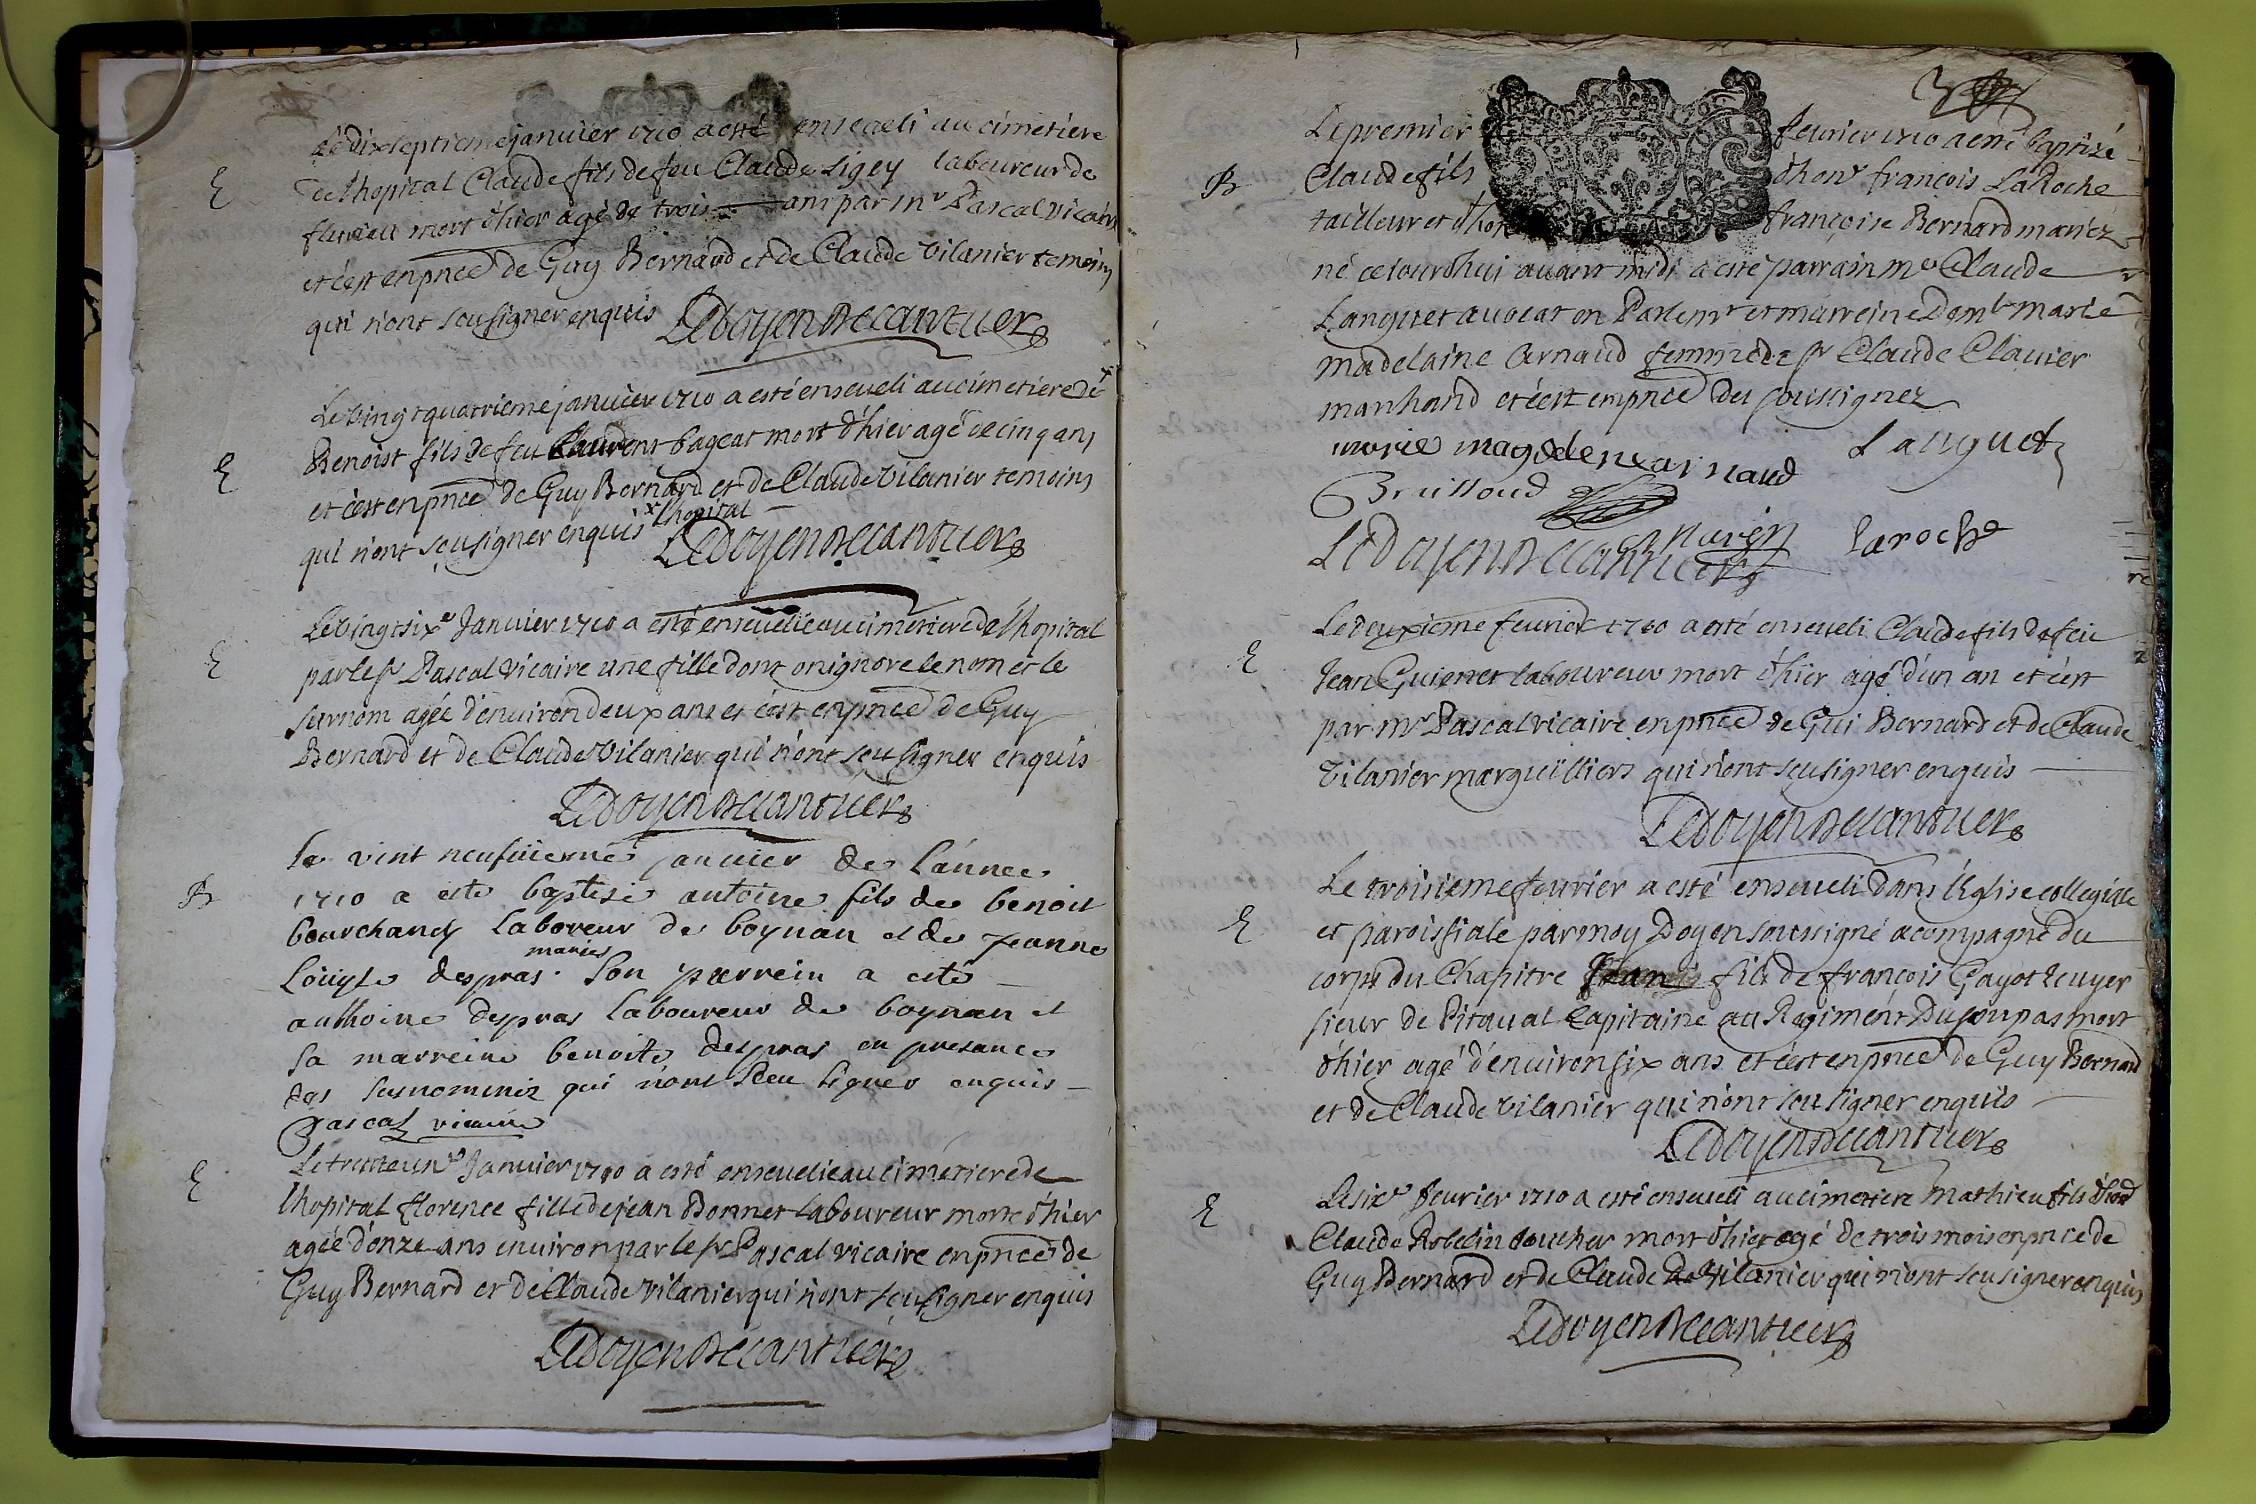 Le dixseptieme janvier 1710 a esté enseveli au cimetiere
E
de l'hopital Claude fils de feu Claude Ligey laboureur de
fleurieu mort d'hier agé de trois ans par mr Pascal vicaire
et c'est en pnce de Guy Bernard et de Claude Vilanier temoins
qui n'ont seu signer enquis Ledoyen Decantuer
Le vingtquatrieme janvier 1710 a esté enseveli au cimetiere de x
E
Benoist fils de feu Laurent Bageat mort d'hier agé de cinq ans
et c'est en pnce de Guy Bernard et de Claude Vilanier temoins
qui n'ont seu signer enquis x lhopital
Ledoyen Decantuer
Le vingtsixe Janvier 1710 a esté ensevelie au cimetiere de l'hopital
E
par le sr Pascal vicaire une fille dont on ignore le nom et le
surnom agée d'environ deux ans et c'est en pnce de Guy
Bernard et de Claude Vilanier qui n'ont seu signer enquis
Ledoyen Decantuer
Le vint neufiieme janvier de lánnee
B
1710 a este baptisé antoine fils de benoit
bourchany laboreur de boynan et de jeanne
maries
louyse despras son parrein a esté
anthoine despras laboureur de boynan et
sa marreine benoite despras en presance
des susnommez qui n'ont sceu signer enquis
Pascal vicaire
Le trenteune Janvier 1710 a esté ensevelie au cimetiere de
E
lhopital florence fille de jean Bonnet laboureur morte d'hier
agée d'onze ans environ par le sr Pascal vicaire en pnce de
Guy Bernard et de Claude Vilanier qui n'ont seu signer enquis
Ledoyen Decantuer
3
Le premier fevrier 1710 a esté baptizé
B
Claude fils d'honr françois LaRoche
tailleur et d'hon françoise Bernard mariez
né cejourdhui avant midi a esté parrain mr Claude
Languet avocat en Parlemt et marreine Demlle marie
madelaine Arnaud femme de sr Claude Clavier
marchand et c'est en pnce des soussignez
marie magdeleine arnaud Languet
Bruissoud
Ledoyen Decantuer laroche
Le deuxieme fevrier 1710 a esté enseveli Claude fils de feu
E
Jean Guionet laboureur mort d'hier agé d'un an et c'est
par mr Pascal vicaire en pnce de Gui Bernard et de Claude
Vilanier marguilliers qui n'ont seu signer enquis
Ledoyen Decantuer
Le troisieme fevrier a esté enseveli dans l'Eglise collegiale
E
et paroissiale par moy Doyen soussigné acompagné du
corps du Chapitre Jean fils de françois Gayot Ecuyer
sieur de Pitaval Capitaine au Regiment mort
d'hier agé d'environ six ans et c'est en pnce de Guy Bernard
et de Claude Vilanier qui n'ont seu signer enquis
Ledoyen Decantuer
Le sixe fevrier 1710 a esté enseveli au cimetiere Mathieu fils d'hon
E
Claude Robelin boucher mort d'hier agé de trois mois en pnce de
Guy Bernard et de Claude Vilanier qui n'ont seu signer enquis
Ledoyen Decantuer